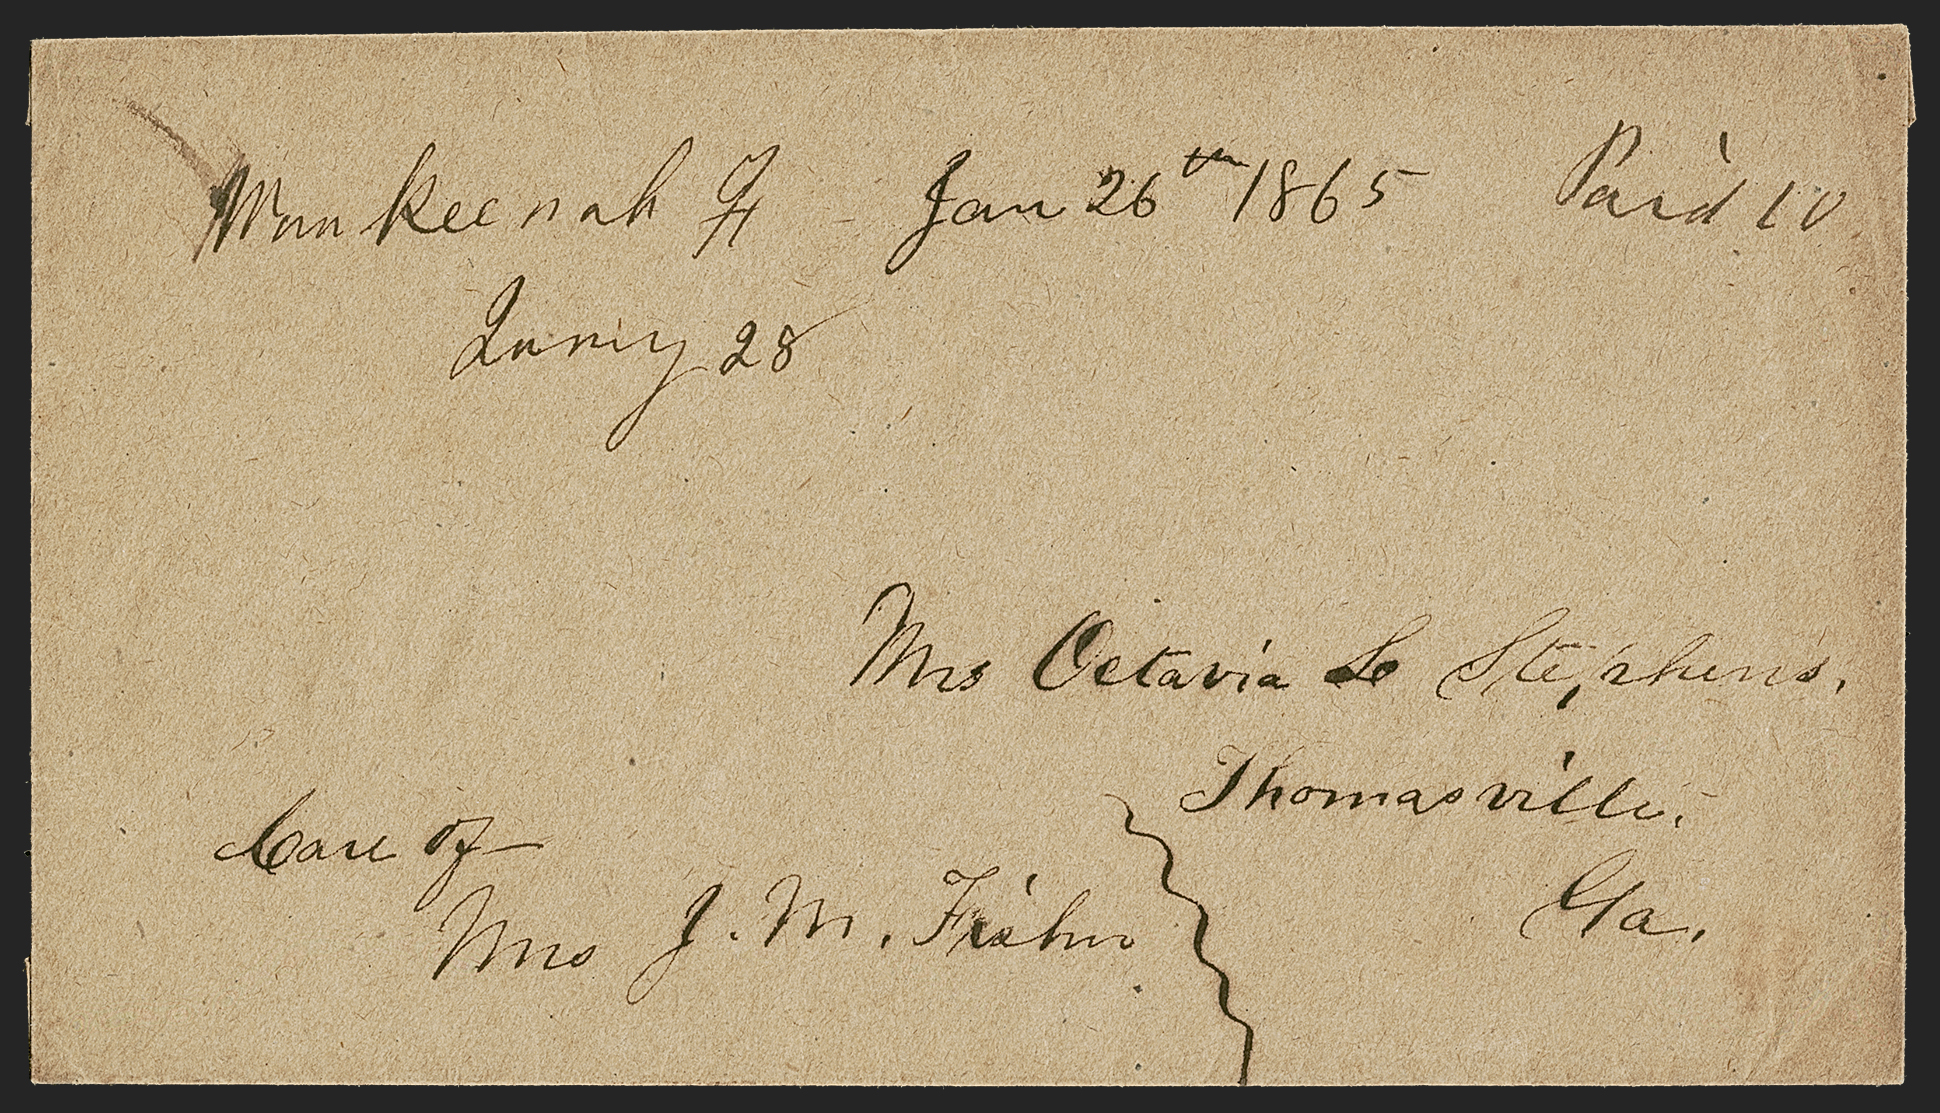 Waukeenah Fl - Jan 26th 1865 Paid 10
28
Mrs Octavia L Stephens.
Thomasville.
Care of
Ga.
Mrs J. M. Fisher